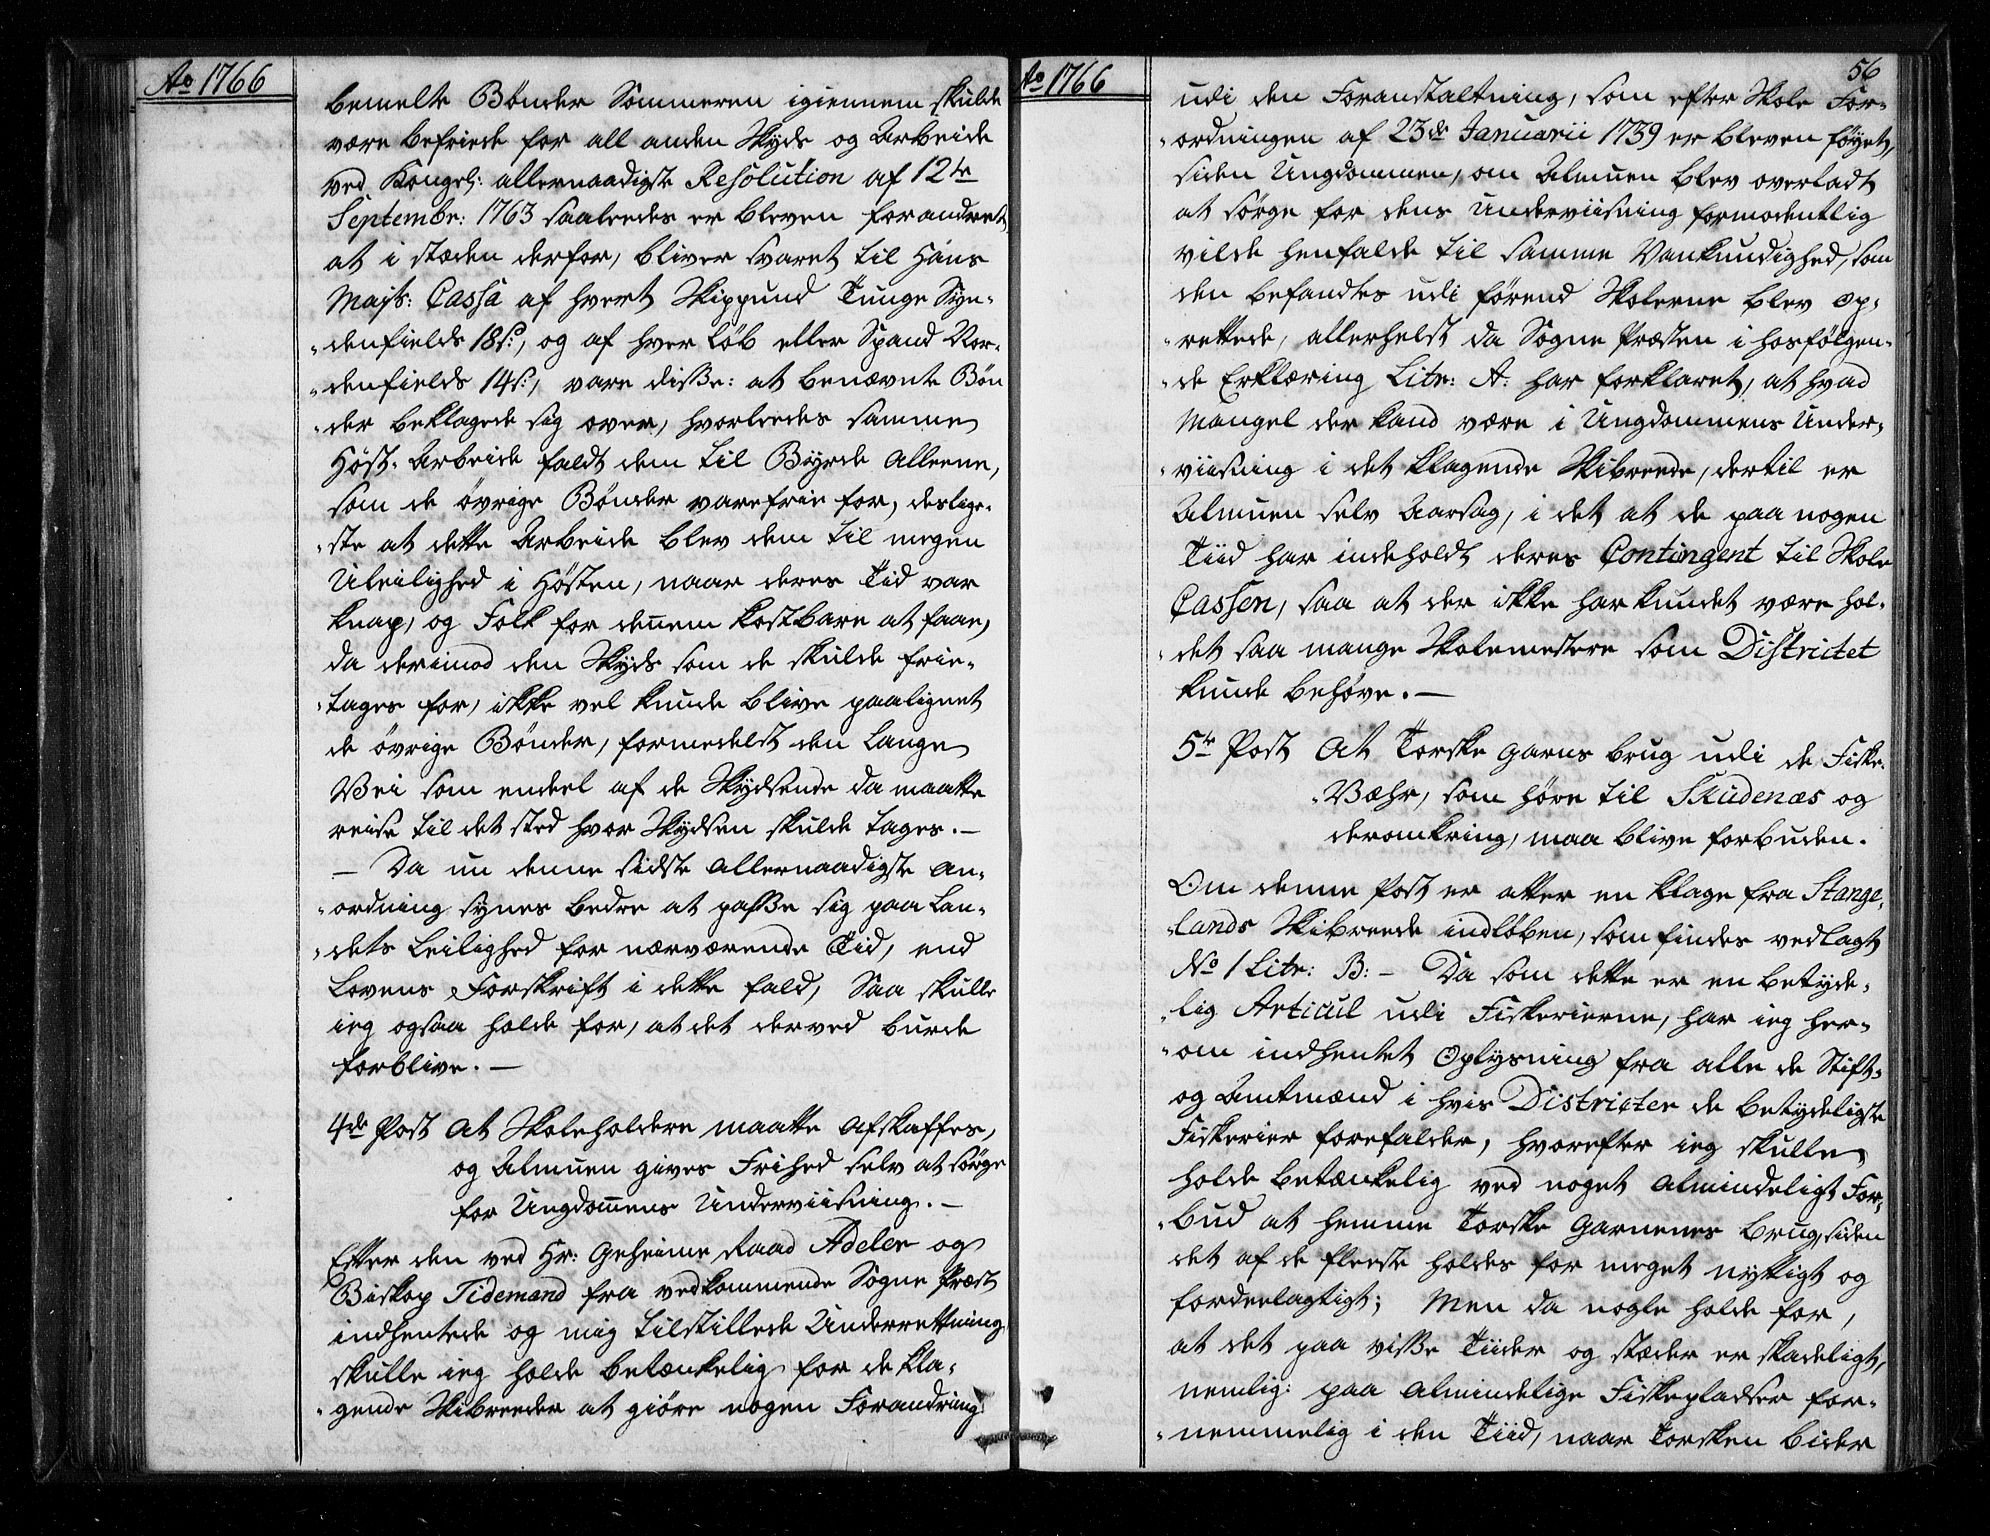 Ao 1766
bemelte Bønder Sommeren igiennem skulde
være befriede for all anden Skyds og Arbeide
ved Kongel: allernaadigste Resolution af 12te
Septembr: 1763 saaledes er bleven forandret,
at i stæden derfor, bliver svaret til Hans
Majts: Cassa af hvert Skippund Tunge Syn-
denfields 18 s:, og af hver Løb eller Spand Nor-
denfields 14 s:, vare disse: at benævnte Bøn
der beklagede sig over, hvorleedes samme
Høst-Arbeide faldt dem til Byrde alleene,
som de øvrige Bønder vare frie for, deslige-
ste at dette Arbeide blev dem til megen
Uleilighed i Høsten, naar deres Tid var
knap, og Folk for dennem kostbare at faae,
da derimod den Skyds som de skulde frie-
tages for, ikke vel kunde blive paalignet
de øvrige Bønder, formedelst den lange
Vei som endeel af de Skydsende da maatte
reise til det sted hvor Skydsen skulde tages. -
- Da nu denne sidste allernaadigste An-
ordning synes bedre at passe sig paa Lan-
dets Leilighed for nærværende Tid, end
Lovens Forskrift i dette fald, Saa skulle
ieg ogsaa holde for, at det derved burde
forblive. -
4de Post At Skoleholdere maatte afskaffes,
og Almuen gives Frihed selv at sørge
for Ungdomens Underviisning. -
Efter den ved Hr: Geheime Raad Adeler og
Biskop Tidemand fra vedkommende Sogne Præst
indhentede og mig tilstillede Underrettning,
skulle ieg holde betænkelig for de kla-
gende Skibreeder at giøre nogen Forandring
Ao 1766
56
udi den Foranstaltning, som efter Skole For-
ordningen af 23de Januarii 1739 er bleven føyet,
siden Ungdommen, om Almuen blev overladt
at sørge for dens Underviisning formodentlig
vilde henfalde til samme Vankundighed, som
den befandtes udi førend Skolerne blev op-
rettede, allerhelst da Sogne Præsten i hosfølgen-
de Erklæring Litr: A: har forklaret, at hvad
Mangel der kand være i Ungdommens Under-
viisning i det klagende Skibreede, dertil er
Almuen selv Aarsag, i det at de paa nogen
Tiid har indeholdt deres Contingent til Skole
Cassen, saa at der ikke har kundet være hol-
det saa mange Skolemestere som Districtet
kunde behøve. -
5te Post At Torske Garns brug udi de Fiske-
Væhr, som høre til Skudenæs og
deromkring, maa blive forbuden.
Om denne Post er atter en klage fra Stange-
lands Skibreede indløben, som findes vedlagt
No 1 Litr: B: - Da som dette er en betyde-
lig Articul udi Fiskerierne, har ieg her-
om indhentet Oplysning fra alle de Stift-
og Amtmænd i hvis Districter de betydeligste
Fiskerier forefalder, hvorefter ieg skulle
holde betænkelig ved noget almindeligt For-
bud at hemme Torske Garnenes Brug, siden
det af de fleeste holdes for meget nyttigt og
fordeelagtigt; Men da nogle holde for,
at det paa visse Tiider og stæder er skadeligt,
nemlig: paa almindelige Fiskepladser for-
nemmelig i den Tiid, naar Torsken bider